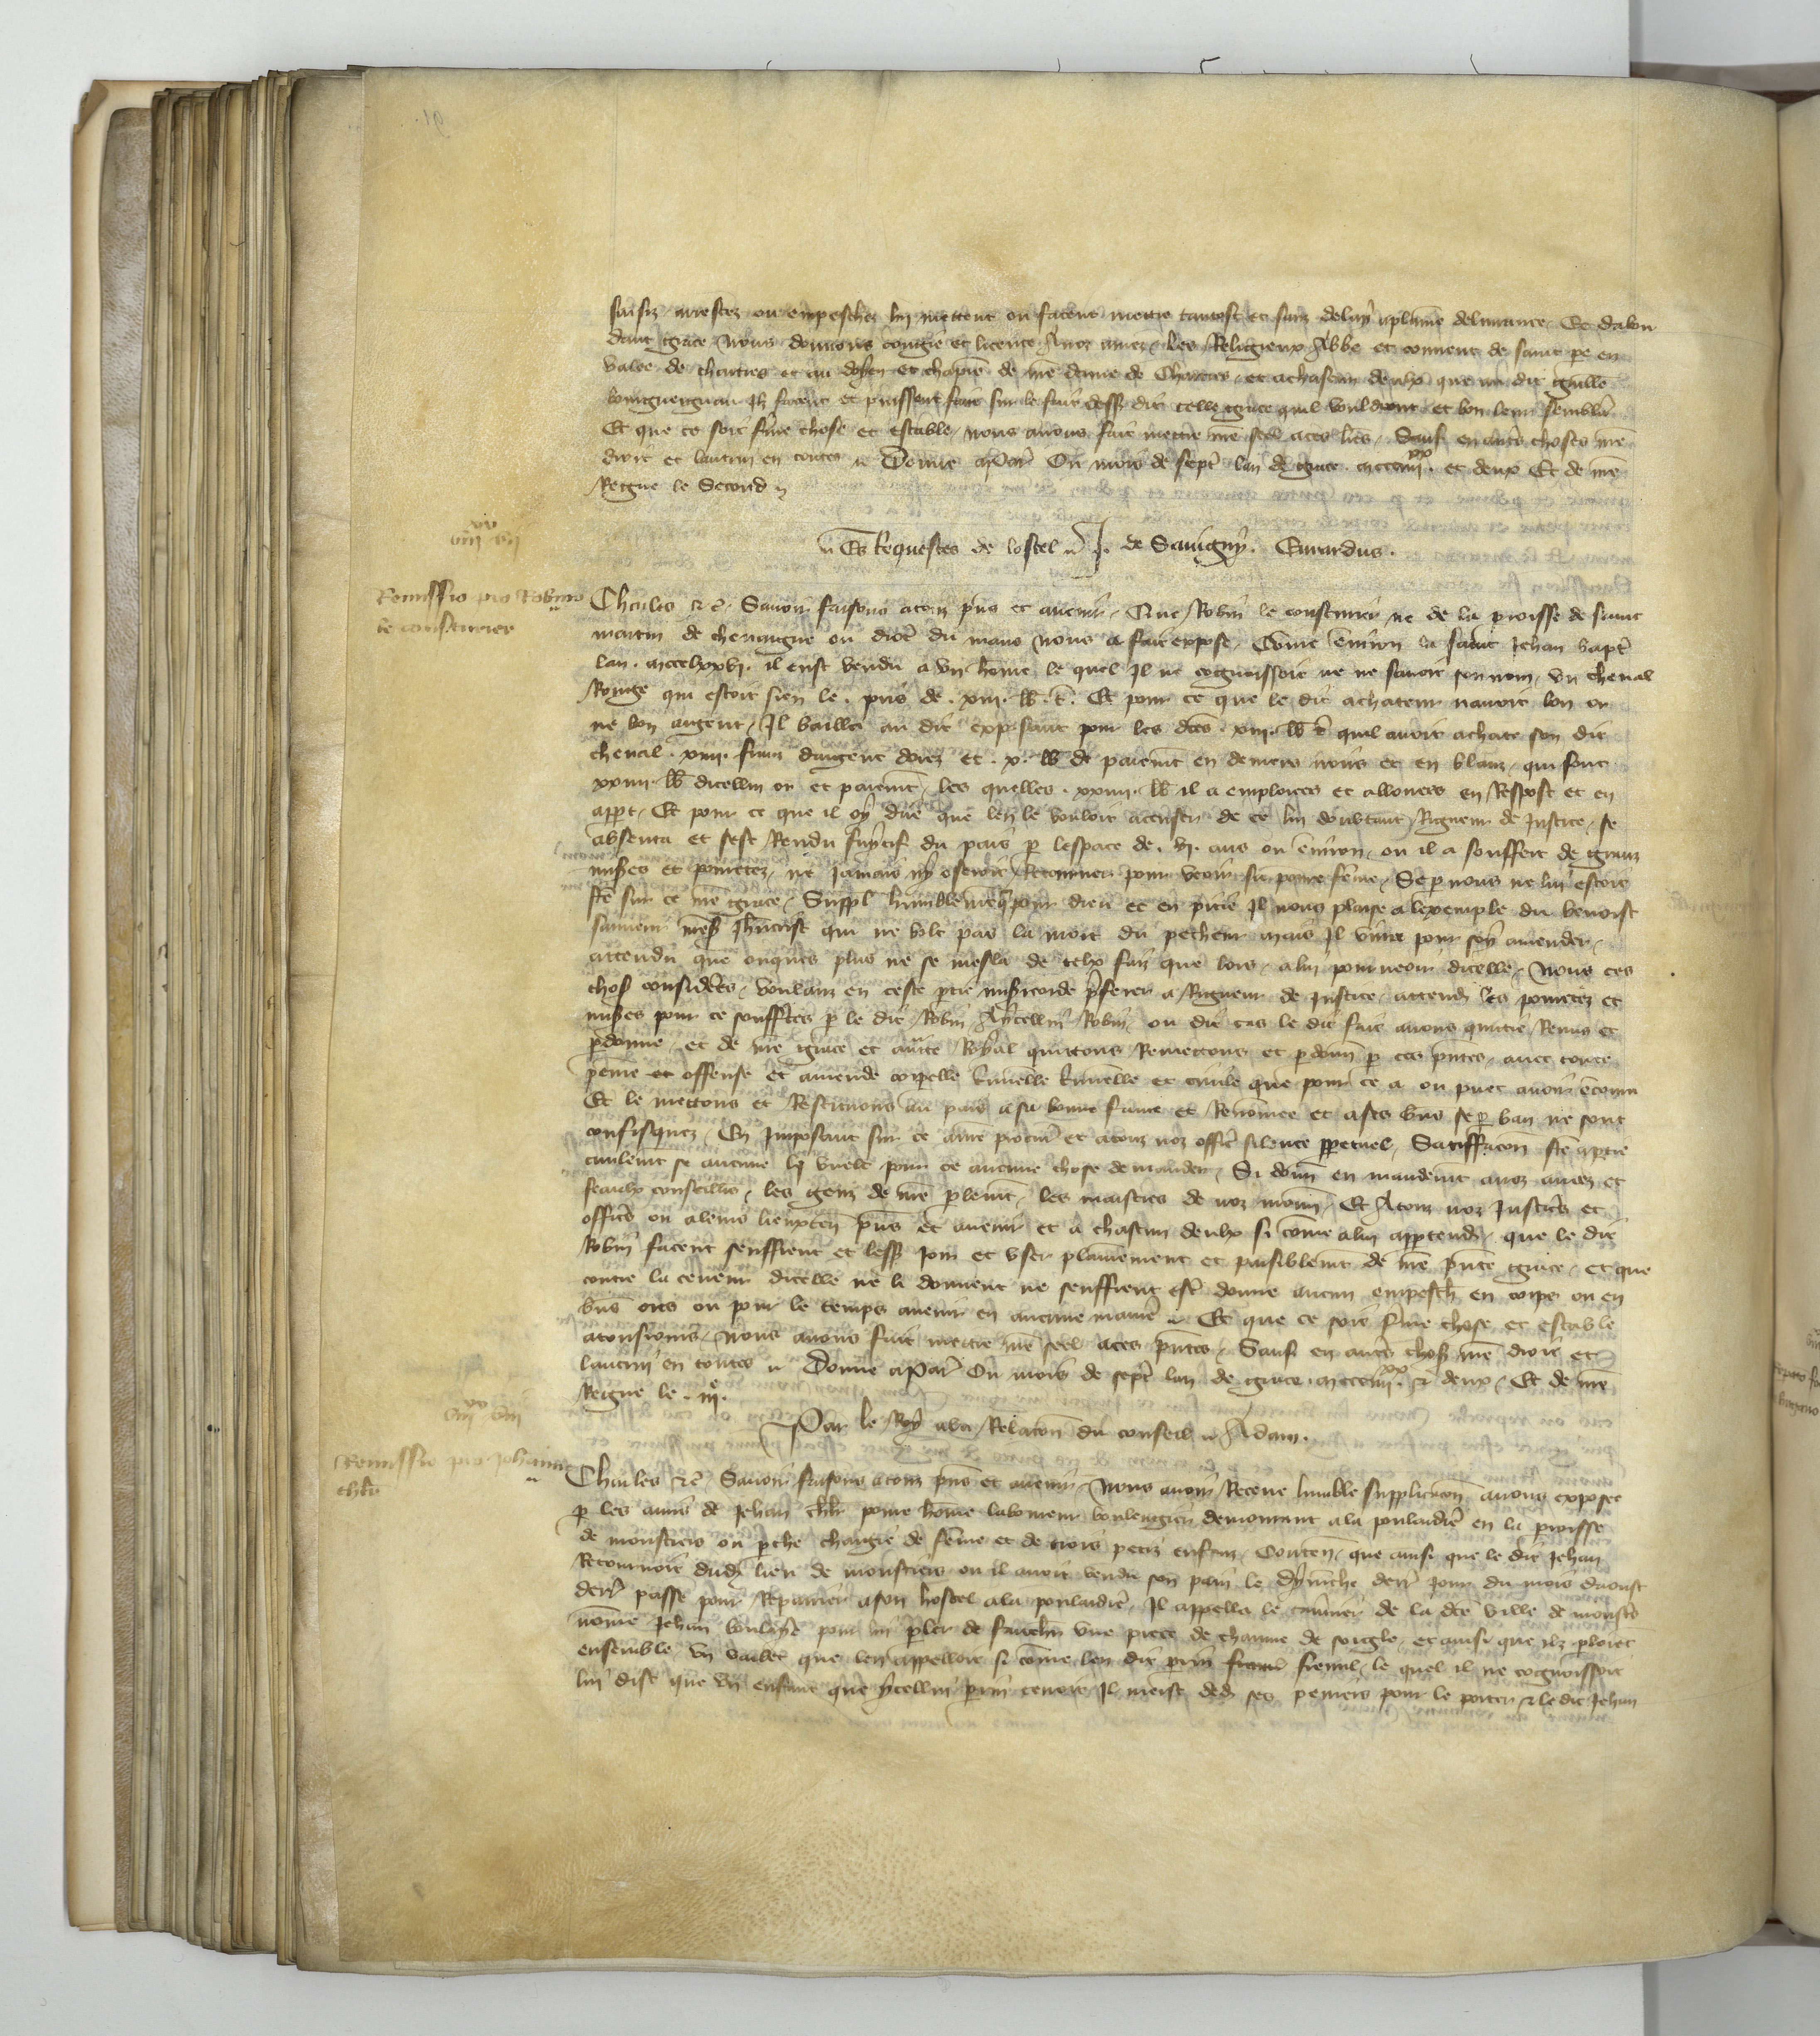 saisiz arrestez ou empeschez lui mettent ou facent mettre tantost et sanz delay a plaine deliurance Et dabon
dant grace nous donnons congie et licence A noz amez les Religieux Abbe et couuent de saint pere en
valee de chartres et au doyen et chapitre de nre dame de Chartres et a chascun deulx que au dit guille
bouguerguau Ilz facent et puissent faire sur le fait dessus dit telle grace quil vouldront et bon leur semblera
Et que ce soit ferme chose et estable nous auons fait mettre nre seel a ces lres Sauf en autres choses nre
droit et lautrui en toutes Donne a Paris Ou mois de sept lan de grace mccciiiixx et deux Et de nre
Regne le Second
Es Requestes de lostel J. de Sauigny. Euuardus.
iiiixx vii
Remissio pro Robino
le cousturier
Charles &c Sauoir faisons a touz pns et auenir Que Robin le cousturier ne de la proisse de saint
martin de ou dioc du mans nous a fait expose Come enuiron la saint Jehan bapt
lan mccclxxvi. il eust vendu a vn home le quel Il ne cognoissoit ne ne sauoit son nom vn cheual
Rouge qui estoit sien le pris de xiii. lb t. Et pour ce que le dit achateur nauoit bon or
ne bon argent Il bailla au dit exposant pour les dces xiii lb t quil auoit achate son dit
cheual xiiii frans dargent dorez et x lb de paiemt en deniers noirs et en blans qui sont
xxiiii lb dicellui or et paiemt les quelles xxiiii lb il a emploiees et allouees en Respost et en
appt Et pour ce que il oy dire que len le vouloit accuser de ce lui doubtant Rigueur de Justice se
absenta et sest Rendu fuitif du pais p lespace de vi. ans ou enuiron ou il a souffert de grans
miseres et pouretez ne Jamais ny oseroit Retourner pour veoir sa poure feme Se p nous ne lui estoit
fte sur ce nre grace Suppl humblemt que pour dieu et en pitie Il nous plaise a lexemple du benoist
sauueur nres Jhucrist qui ne volt pas la mort du pecheur mais Il viure pour soy amender
attendu que onques plus ne se mesla de telx faiz que lors a lui pourueoir dicelle Nous ces
choses considerees voulanz en ceste ptie misericorde pferer a Rigueur de Justice attendu les pouretez et
miseres pour ce souffertes p le dit Robin A ycellui Robin ou dit cas le dit fait auons quittie Remis et
pdonne et de nre grace et aucte Royal quittons Remettons et pdonn p ces pntes auec toute
peine et offense et amende corpelle criminelle criminelle et ciuile que pour ce a ou puet auoir encouru
Et le mettons et Restituons au pais a sa bonne fame et Renomee et a ses biens se p ban ne sont
confisquez En Imposant sur ce a nre procur et a touz noz offic silence ppetuel Satiffacon fte a ptie
ciuilemt se aucune li vuelt pour ce aucune chose demander Si donn en mandemt a noz amez et
feaulx conseillers les gens de nre plemt les maistres de noz monn Et A touz noz Justiciers et
officiers ou a leurs lieuxten pns et auenir et a chascun deulx si come a lui apptendra que le dit
Robin facent seuffrent et lessent Joir et vser plainement et paisiblemt de nre pnte grace et que
contre la teneur dicelle ne li donnent ne seuffrent estre donne aucun empesch en corps ou en
biens ores ou pour le temps auenir en aucune maniere Et que ce soit ferme chose et estable
a tousiours Nous auons fait mettre nre seel a ces pntes Sauf en autres choses nre droit et
lautrui en toutes Donne a Paris Ou mois de sept lan de grace mccciiiixx & deux Et de nre
Reigne le iiie.
Par le Roy a la Relacon du conseil Adam.
iiiixx viii
Remissio pro Johanne
Charles &c Sauoir faisons a touz pns et auenir Nous auoir Receue humble supplicacon a nous exposee
p les amis de Jehan poure home laboureur boulengier demourant a la poulardiere en la proisse
de moustiers ou pche chargie de feme et de trois petiz enfanz Conten que ainsi que le dit Jehan
Retournoit dudit lieu de moustiers ou il auoit vendu son pain le dymenche derr Jour du mois daoust
derr passe pour Repairier a son hostel a la poulardiere Il appella le de la dce ville de moustiers
nomme Jehan pour lui pler de vne piece de chaume de soigle et ainsi que ilz ploiet
ensemble vn varlet que len appelloit si come len dit le quel il ne cognoissoit
lui dist que vn enfant que ycellui tenoit Il meist dedenz ses peniers pour le porter & le dit Jehan